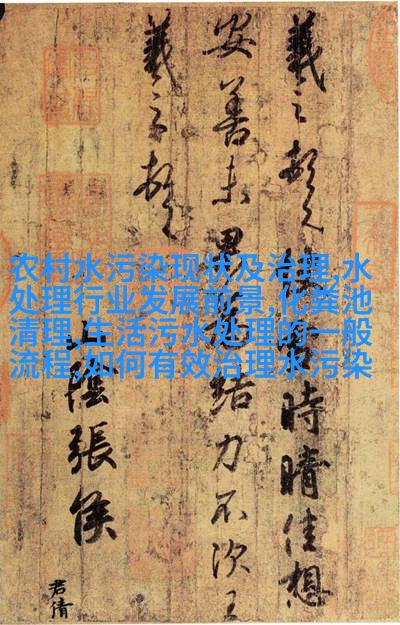 羲之頓首快雪時晴佳想
安善未果為結力不次王
羲之頓首
山陰張侯
君倩
农村水污染现状及治理,水
处理行业发展前景,化粪池
清理,生活污水处理的一般
流程,如何有效治理水污染